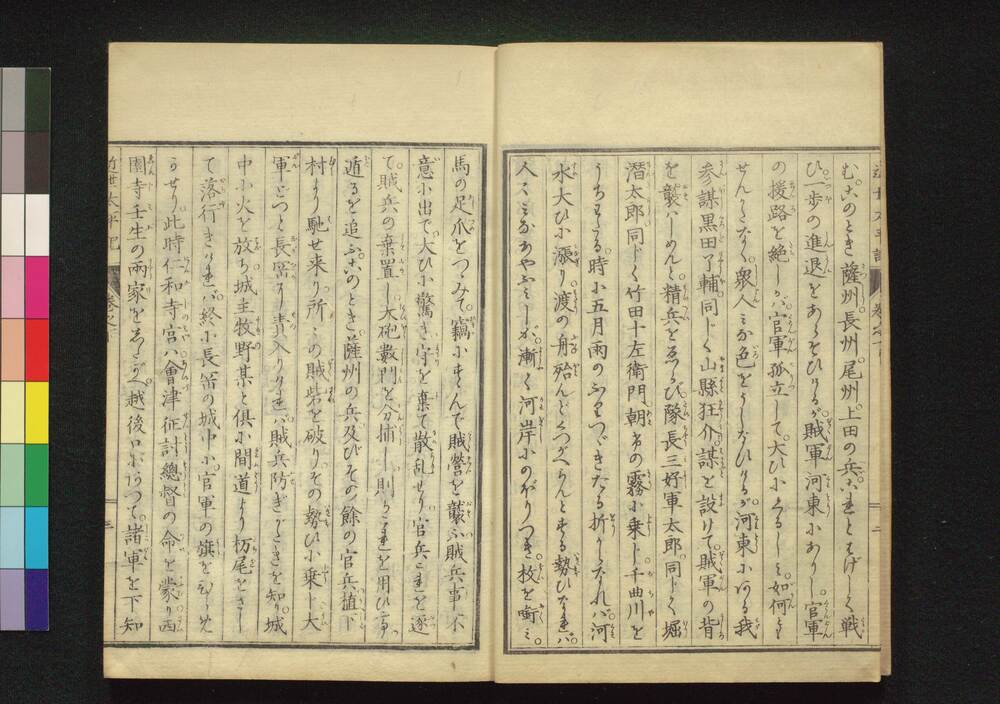 む。このとき薩州。長州。尾州。上田の兵。これとはげしく戦
ひ。一歩の進退をあらそひけるが。賊軍河東にありし。官軍
の援路を絶しかバ。官軍孤立して。大ひにくるしミ。如何とも
せんかたなく。衆人ミな色をうしなひけるが。河東にある我
参謀黒田了輔。同じく山縣狂介。謀を設けて。賊軍の背
を襲ハしめんと。精兵をゑらび。隊長三好軍太郎。同じく堀
潜太郎。同じく竹田十左衛門。朝まの霧に乗じ。千曲川を
うちわたる。時に五月雨のふりつゞきたる折からなれバ。河
水大ひに漲り。渡の舟殆んどくつがへらんとする勢ひなれバ。
人〻ミなあやふミしが。漸く河岸にのぼりつき。枚を啣ミ。
馬の足爪をつゝみて。竊にすゝんで賊営を襲ふ。賊兵事不
意に出で。大ひに驚き。守を棄て散乱せり。官兵これを逐
て。賊兵の棄置し。大砲数門を分捕し。則ちこれを用ひ。
遁るを追ふ。このとき。薩州の兵及びその餘の官兵。植下
村より馳せ来り。所〻の賊砦を破り。その勢ひに乗じ。大
軍どつと長岡に責入りけれバ。賊兵防ぎがたきを知り。城
中に火を放ち。城主牧野某と倶に間道より。栃尾をさし
て落行きけれバ。終に長岡の城中に。官軍の旗をひらめ
かせり。此時仁和寺宮ハ。會津征討総督の命を蒙り。西
園寺壬生の両家をしたがへ。越後口にいつて。諸軍を下知
近世太平記 巻之下 三
近世太平記 巻之下 二